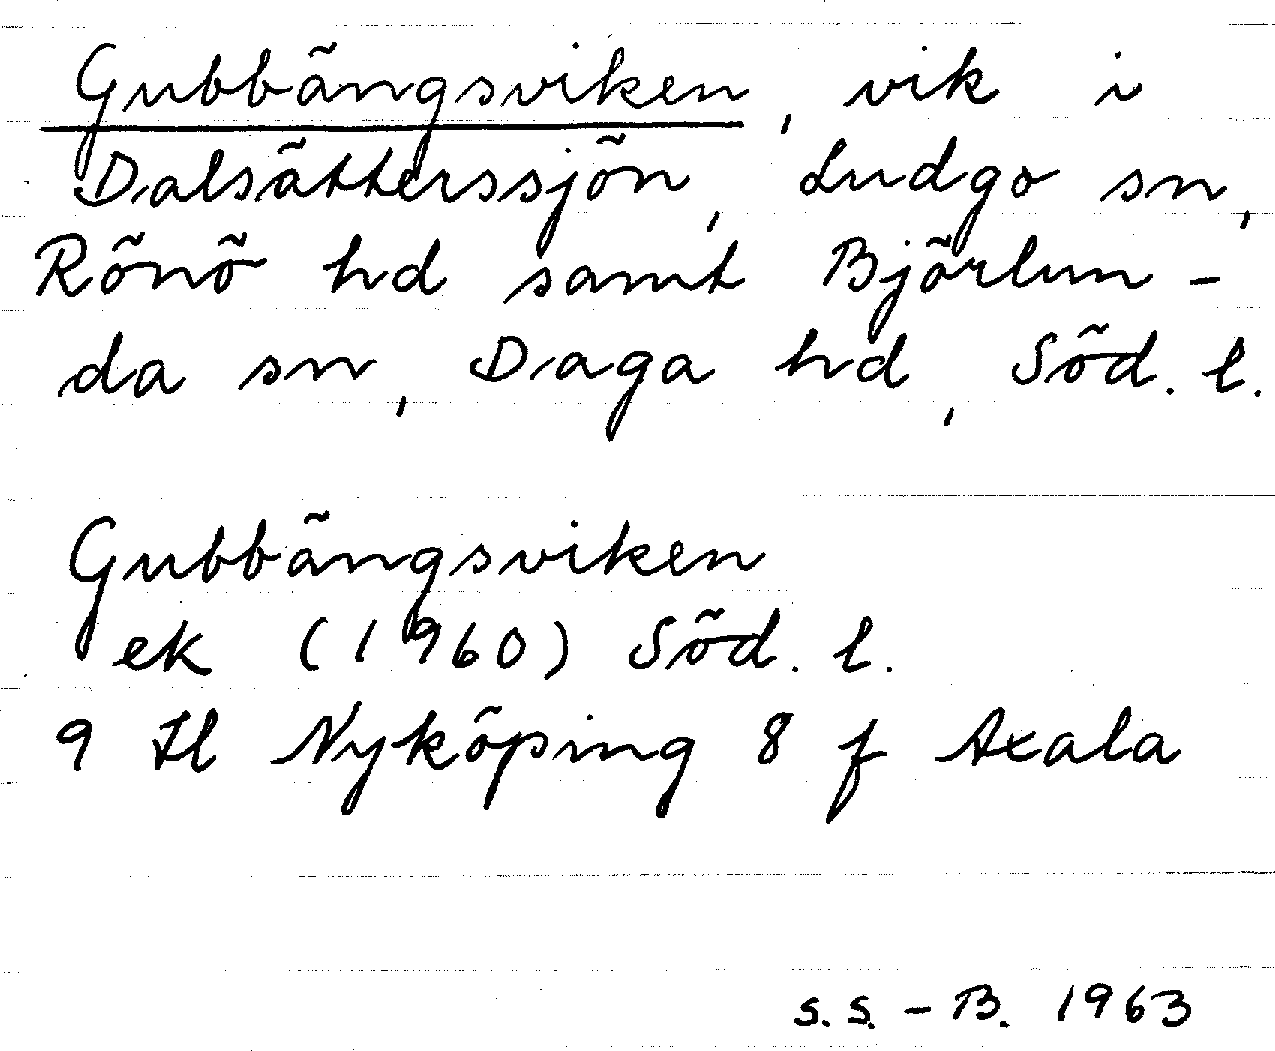 Gubbängsviken, vik i
Dalsätterssjön, Ludgo sn,
Rönö hd samt Björlun-
da sn, Daga hd, Söd. l.
Gubbängsviken
ek (1960) Söd. l.
9 Il Nyköping 8 f Axala
S.S.-B. 1963